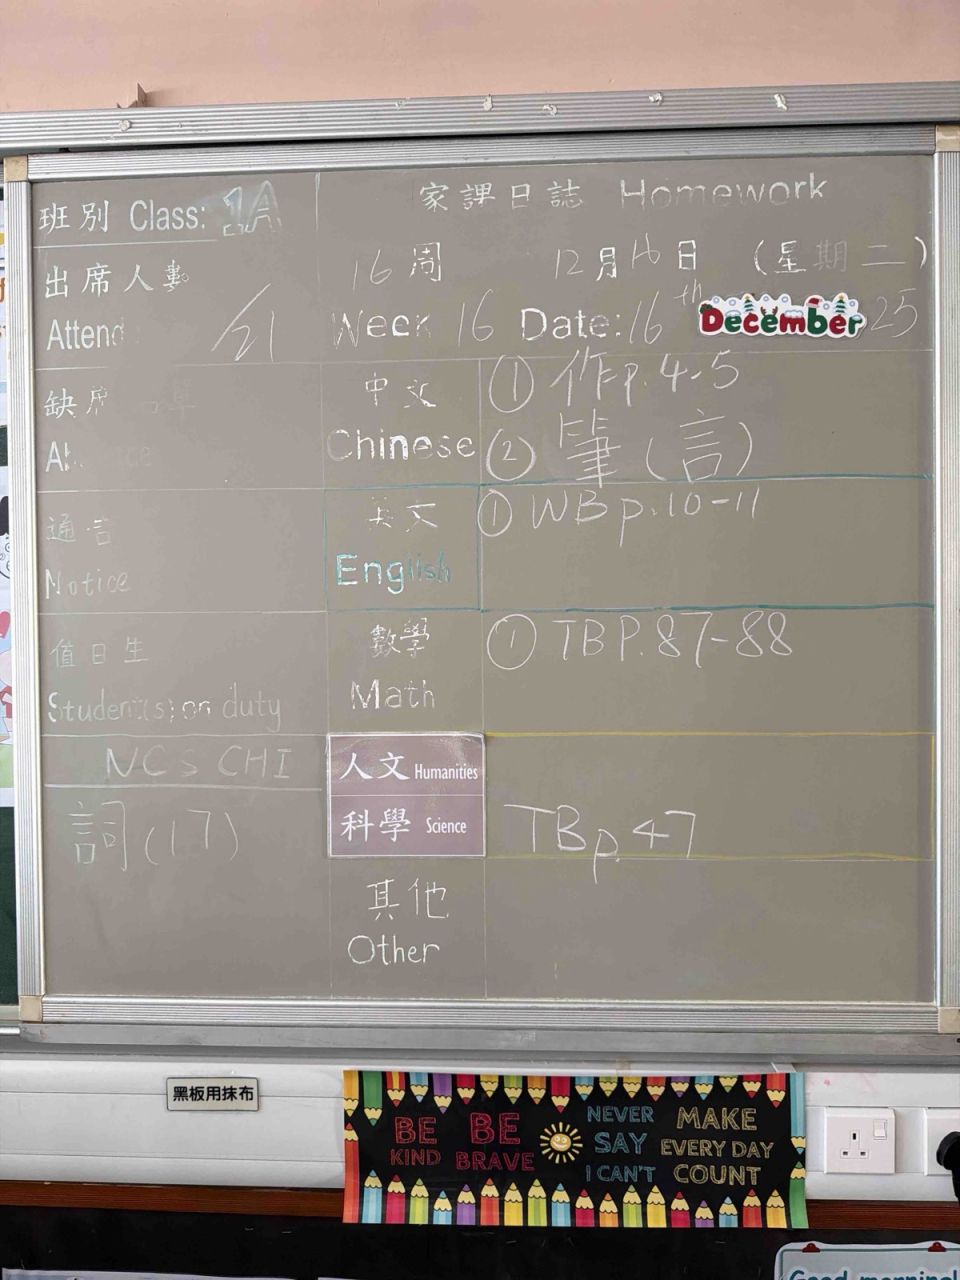 班別 Class: 1A
家課日誌 Homework
出席人數
16周 12月16日 (星期二)
Attend /21
Week 16 Date: 16th December 25
缺席
中文 Chinese
① 作p.4-5
② 筆(言)
通告
Notice
英文 English
① WB p.10-11
值日生
Student(s) on duty
數學 Math
① TB P.87-88
NCS CHI
詞(17)
人文 Humanities
科學 Science
TB p.47
其他
Other
黑板用抹布
BE KIND
BE BRAVE
NEVER SAY I CAN'T
MAKE EVERY DAY COUNT
Good morning!